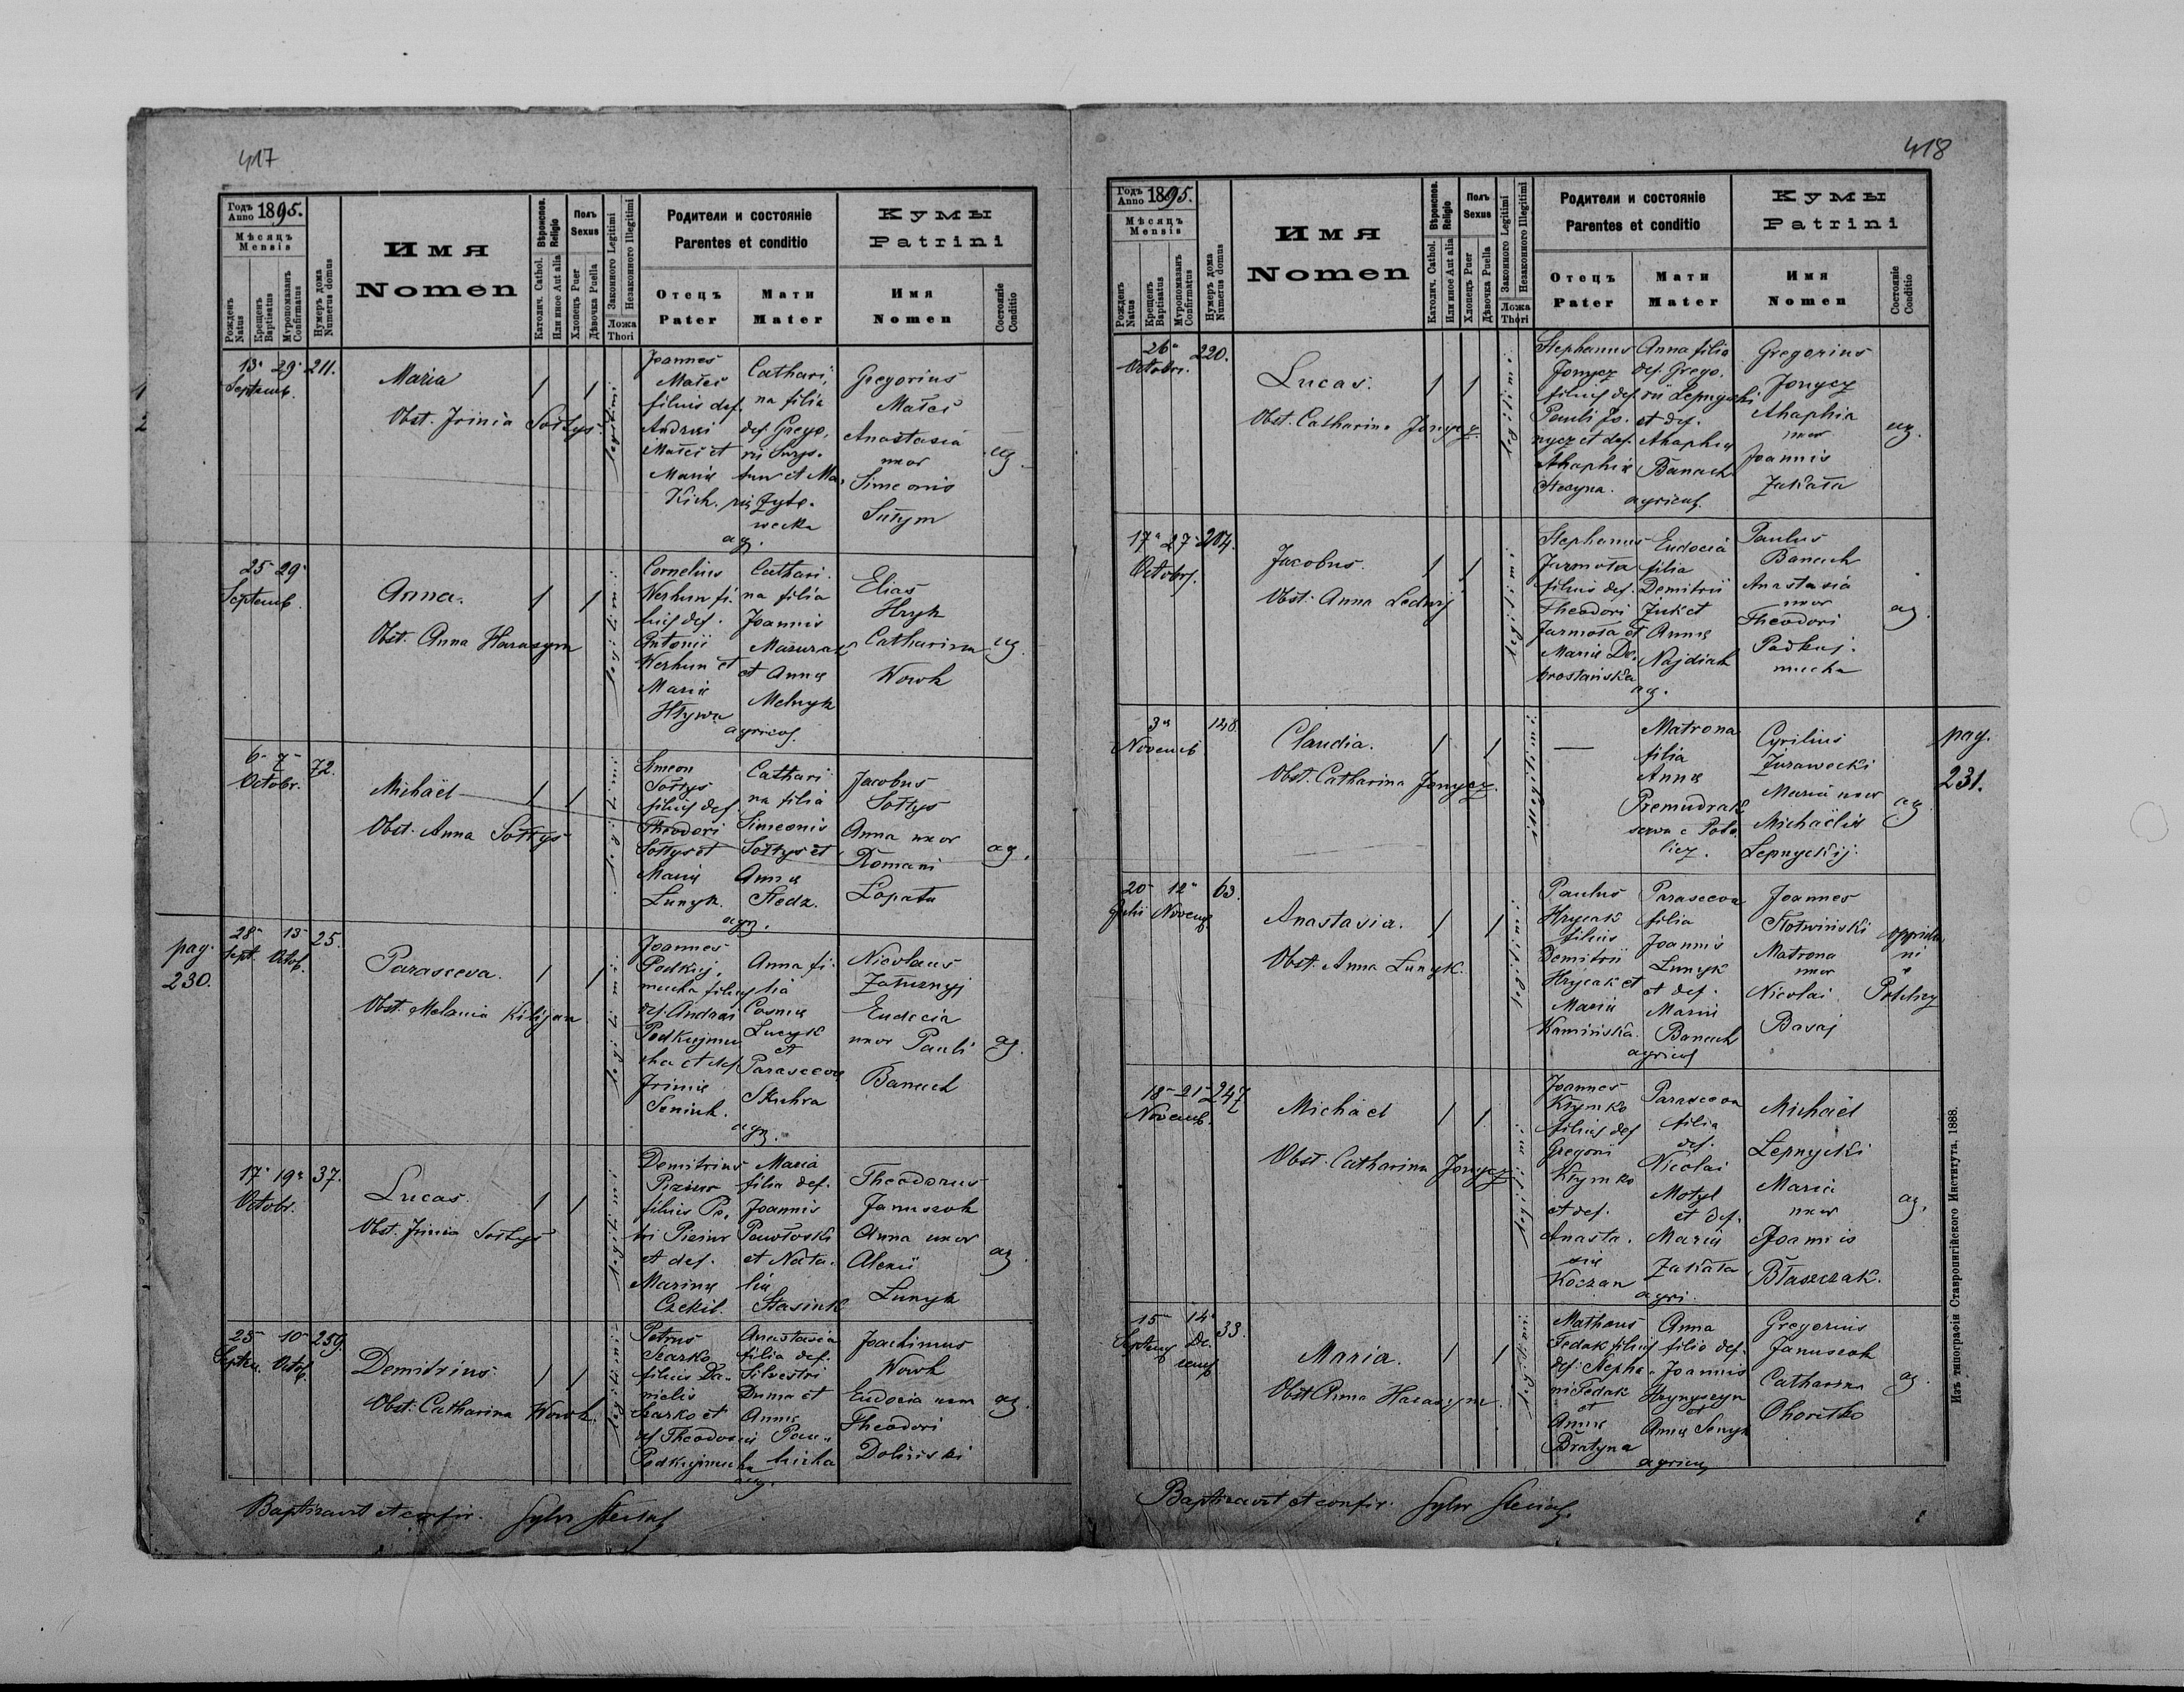 417
Годъ Anno 1895.
Мѣсяцъ Mensis
Рожденъ Natus
Крещенъ Baptisatus
Мѵропомазанъ Confirmatus
Нумеръ дома Numerus domus
Имя Nomen
Вѣроисповѣд. Religio
Католич. Cathol.
Или иное Aut alia
Полъ Sexus
Хлопецъ Puer
Дѣвочка Puella
Законного Legitimi
Незаконного Illegitimi
Ложа Thori
Родители и состояніе
Parentes et conditio
Отецъ Pater
Мати Mater
Кумы
Patrini
Имя Nomen
Состояніе Conditio
1
2
13 29 211.
Septemb.
Maria
Obst. Irinia Sołtys
legitimi
Joannes
Małeć
filius def.
Andrei
Małeć et
Mariæ
Kich.
Cathari
na filia
def. Grego
rii
et Ma
riæ Żyto
wecka
ag.
Gregorius
Małeć
Anastasia
uxor
Simeonis
Sułym
ag.
25 29
Septemb.
Anna.
Obst. Anna Harasym
legitimi
Cornelius
Werhun fi
lius def.
Antonii
Werhun et
Mariæ
Hływa
Cathari
na filia
Joannis
Mazurak
et Annæ
Melnyk
agricol.
Elias
Hryk
Catharina
Wowk
ag.
6 7 72.
Octobr.
Michaël
Obst. Anna Sołtys
legitimi
Simeon
Sołtys
filius def
Theodori
Sołtys et
Mariæ
Łunyk.
Cathari
na filia
Simeonis
Sołtys et
Annæ
Fedz.
agr.
Jacobus
Sołtys
Anna uxor
Romani
Łopata
ag.
pag.
230.
28 13 25.
Sept. Octob.
Parasceva.
Obst. Melania Kilijan
legitimi
Joannes
Podkuj
mucha filius
def. Andrei
Podkujmu
cha et def
Iriniæ
Seniuk.
Anna fi
lia
Cosmæ
Lucyk
et
Parascevæ
Skuhra
agr.
Nicolaus
Załuznyj
Eudocia
uxor Pauli
Banach
ag.
17 19 37.
Octobr.
Lucas.
Obst. Irinia Sołtys
legitimi
Demitrius
filius Pe
tri
et def.
Marinæ
Czekil.
Maria
filia def.
Joannis
Pawłoski
et Nata
liæ
Stasiuk
Theodorus
Januszok
Anna uxor
Alexii
Łunyk
ag.
25 10 259.
Septem. Octob.
Demitrius
Obst: Catharina Wowk.
legitimi
Petrus
Szarko
filius Da
nielis
Szarko et
def Theodosiæ
Podkujmucha
Anastasia
filia def.
Silvestri
Duma et
Annæ
agr.
Joachimus
Wowk
Eudocia uxor
Theodori
Doliński
ag.
Baptizavit et confir.
418
Годъ Anno 1895.
Мѣсяцъ Mensis
Рожденъ Natus
Крещенъ Baptisatus
Мѵропомазанъ Confirmatus
Нумеръ дома Numerus domus
Имя Nomen
Вѣроисповѣд. Religio
Католич. Cathol.
Или иное Aut alia
Полъ Sexus
Хлопецъ Puer
Дѣвочка Puella
Законного Legitimi
Незаконного Illegitimi
Ложа Thori
Родители и состояніе
Parentes et conditio
Отецъ Pater
Мати Mater
Кумы
Patrini
Имя Nomen
Состояніе Conditio
26 220.
Octobr.
Lucas.
Obst. Catharina Jonycz.
legitimi
Stephanus
Jonycz
filius def.
Pauli Jo
nycz et def.
Ahaphiæ
Stecyna.
Anna filia
def. Grego
rii Lepnycki
et def.
Ahaphiæ
Banach
agricol.
Gregorius
Jonycz
Ahaphia
uxor
Joannis
Zakała
ag.
17 27 204.
Octobr.
Jacobus.
Obst. Anna Ledwij
legitimi
Stephanus
Jarmoła
filius def.
Theodori
Jarmoła et
Mariæ Do
brostańska
Eudocia
filia
Demitrii
Żuk et
Annæ
Najdiak
ag.
Paulus
Banach
Anastasia
uxor
Theodori
Podkuj
mucha
ag.
3 148.
Novemb
Claudia.
Obst. Catharina Jonycz.
illegitimi
Matrona
filia
Annæ
Premudrak
serva e Poty
licz.
Cyrilius
Żurawecki
Maria uxor
Michaëlis
Lepnyckij.
ag
pag.
231.
20 12 63.
Julii Novemb.
Anastasia.
Obst. Anna Łunyk.
legitimi
Paulus
Hrycak
filius
Demitrii
Hrycak et
Mariæ
Kamińska.
Parasceva
filia
Joannis
Łunyk
et def.
Mariæ
Banach
agricol
Joannes
Słotwiński
Matrona
uxor
Nicolai
Basaj
oppida
ni
Potylicz
18 21 247
Novemb.
Michaël
Obst. Catharina Jonycz
legitimi
Joannes
Kłymko
filius def
Gregorii
Kłymko
et def.
Anasta
siæ
Koczan
Parasceva
filia
def.
Nicolai
Motyl
et def.
Mariæ
Zakała
agri.
Michaël
Lepnycki
Maria
uxor
Joannis
Błaszczak.
ag.
15 14 33.
Septemb De
cemb
Maria.
Obst Anna Harasym.
legitimi
Matheus
Fedak filius
def. Stepha
ni Fedak
et
Annæ
Bratyna
Anna
filia def.
Joannis
Hrynyszyn
et
Annæ Senyk
agricol
Gregorius
Januszok
Catharina
Ohoritko
ag.
Baptizavit et confir.
Изъ типографіи Ставропигійского Института, 1888.